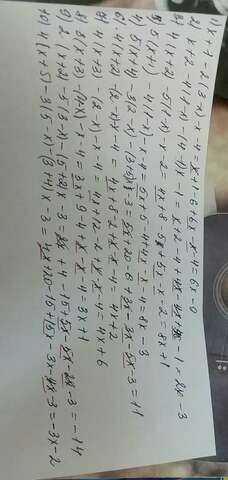 1) x+1-2(3-x)-4=x+1-6+6x-x-4=6x-0
2) x+2-4(1-x)-(4-1)x-1=x+2-4+4x-4x+x-1=2x-3
3) 4(x+2)-5(1-x)-x-2=4x+8-5+5x-x-2=8x+1
4) 5(x+1)-4(1-x)-x-4=5x+5-4+4x-x-4=8x-3
5) 5(x+4)-3(2-x)-(3+5)x-3=5x+20-6+3x-3x-5x-3=+11
6) 4(x+2)-(2-x)-x-4=4x+8-2+x-x-4=4x+2
7) 4(x+3)-(2-x)-x-4=4x+12-2+x-x-4=4x+6
8) 3(x+3)-(4-x)-x-4=3x+9-4+x-x-4=3x+1
9) 2(x+2)-5(3-x)-(5+2)x-3=2x+4-15+5x-5x-2x-3=-14
10) 4(x+5)-3(5-x)-(3+4)x-3=4x+20-15+15x-3x-4x-3=-3x-2